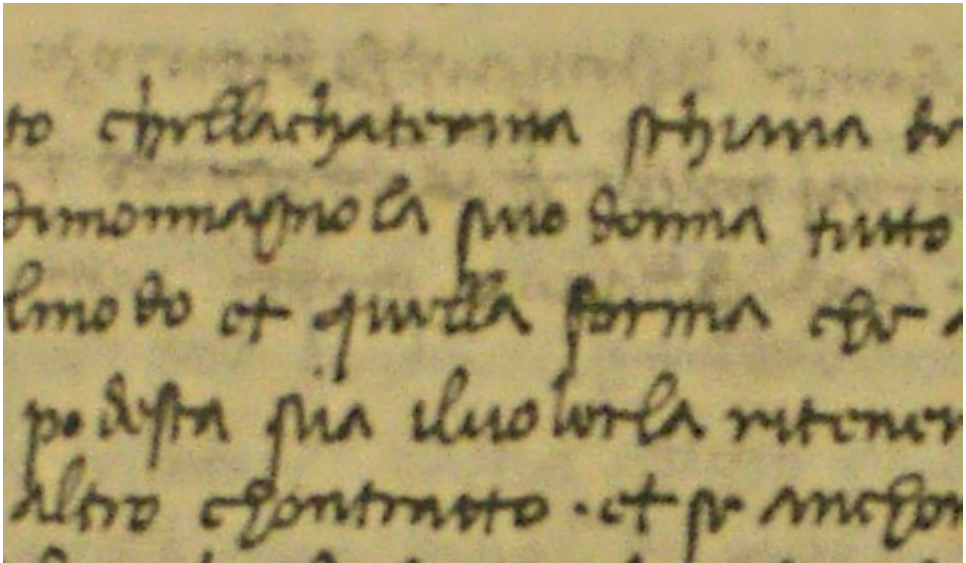 to chellachaterina schiava de
dimonnagniola suo donna tutto
lmodo et quella forma che a
podesta sua iluolerla ritener
altro chontratto · et se anchor